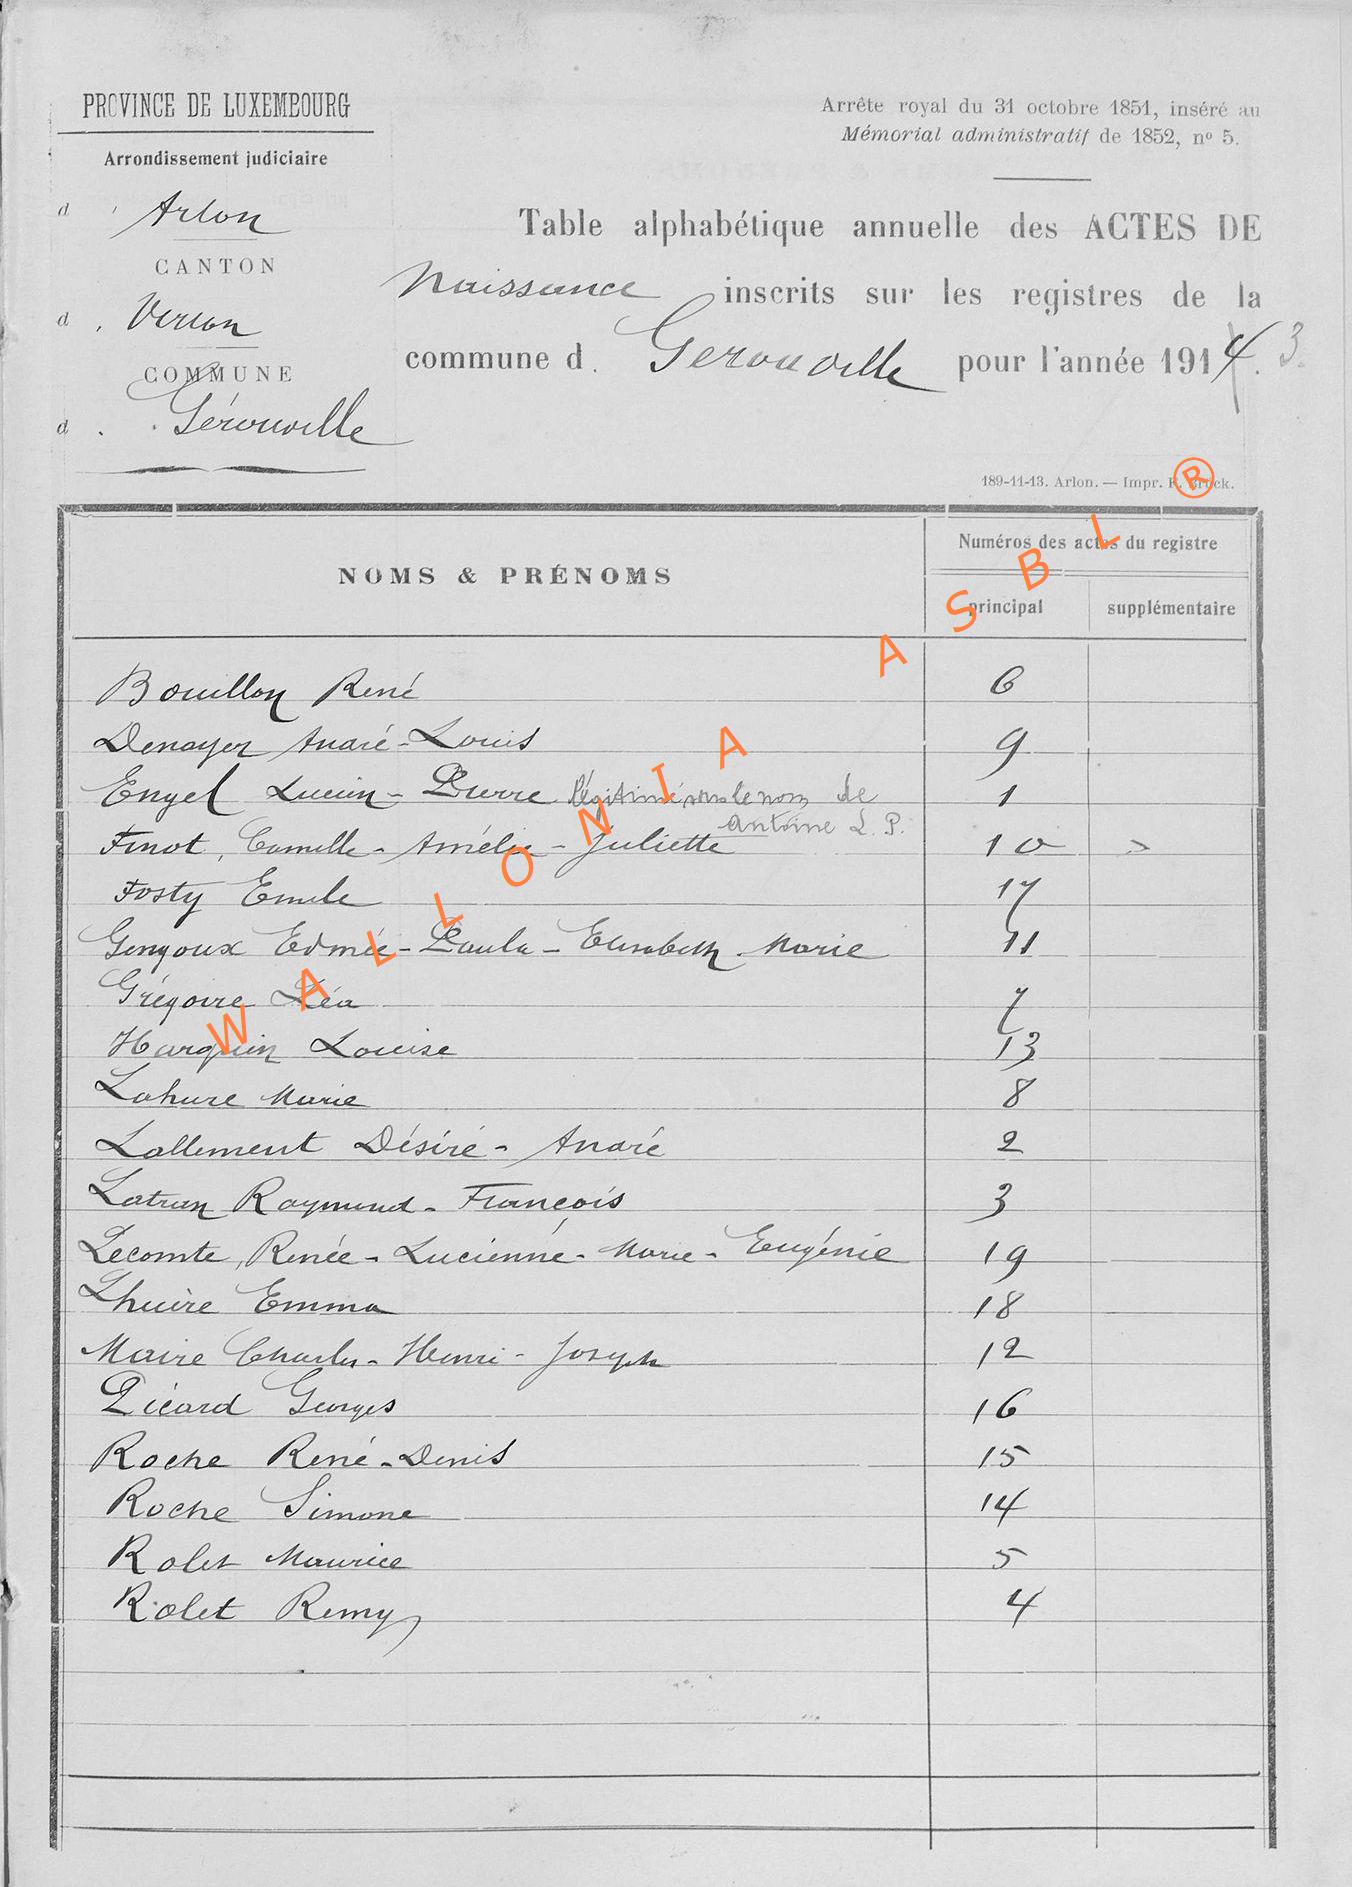 PROVINCE DE LUXEMBOURG
Arrondissement judiciaire
d' Arlon
CANTON
d. Virton
COMMUNE
d. Gérouville
Arrête royal du 31 octobre 1851, inséré au
Mémorial administratif de 1852, nº 5.
Table alphabétique annuelle des ACTES DE
Naissance inscrits sur les registres de la
commune d. Gerouville pour l'année 1914. 3.
189-11-13. Arlon. — Impr. F. Brück.
NOMS & PRÉNOMS
Numéros des actes du registre
principal supplémentaire
Bouillon René 6
Denayer André-Louis 9
Engel Lucien-Pierre Légitimé sous le nom de 1
Antoine L. P.
Finot, Camille-Amélie-Juliette 10 >
Fosty Emile 17
Gengoux Edmée-Paula-Elisabeth-Marie 11
Grégoire Léa 7
Harquin Louise 13
Lahure Marie 8
Lallement Désiré-André 2
Latran Raymond-François 3
Lecomte, Renée-Lucienne-Marie-Eugénie 19
Lhuire Emma 18
Maire Charles-Henri-Joseph 12
Picard Georges 16
Roche René-Denis 15
Roche Simone 14
Rolet Maurice 5
Rolet Remy 4
WALLONIA ASBL ®